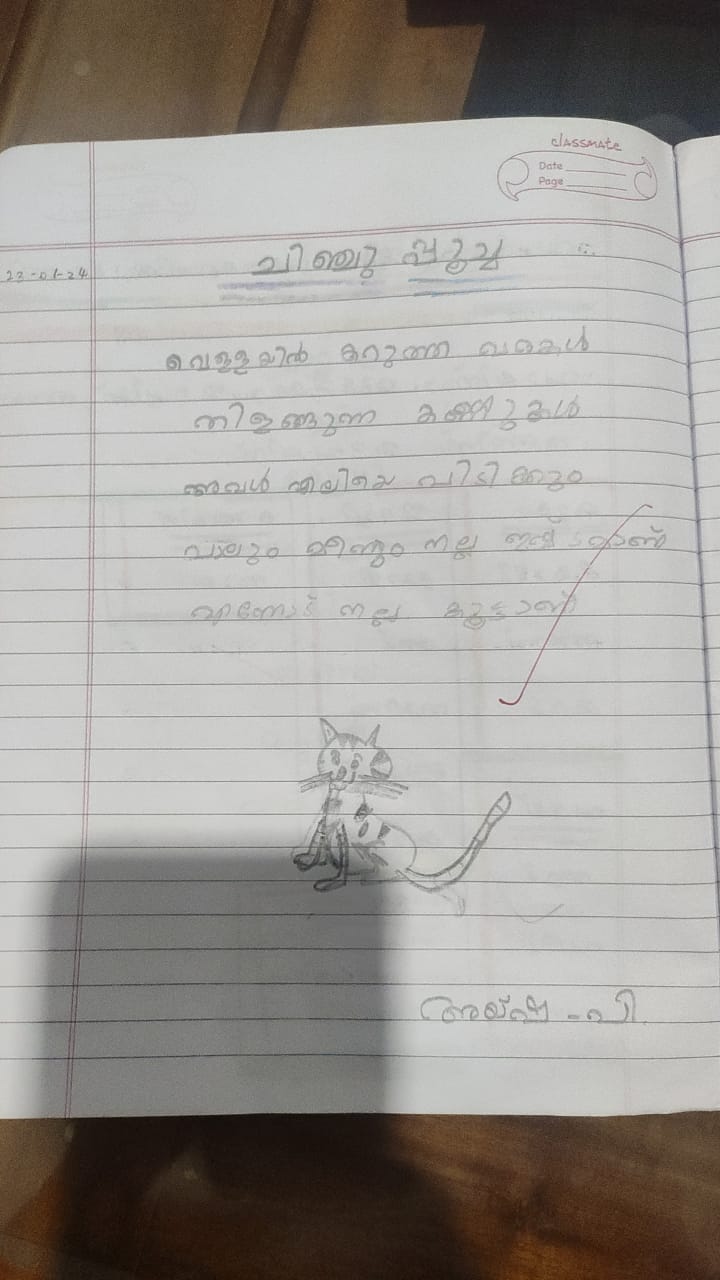 classmate
Date
Page
23-01-24
ചിഞ്ചു പൂച്ച
വെള്ളയിൽ കറുത്ത വരകൾ
തിളങ്ങുന്ന കണ്ണുകൾ
അവൾ എലിയെ പിടിക്കും
പാലും മീനും നല്ല ഇഷ്ടമാണ്
എന്നോട് നല്ല കൂട്ടാണ്